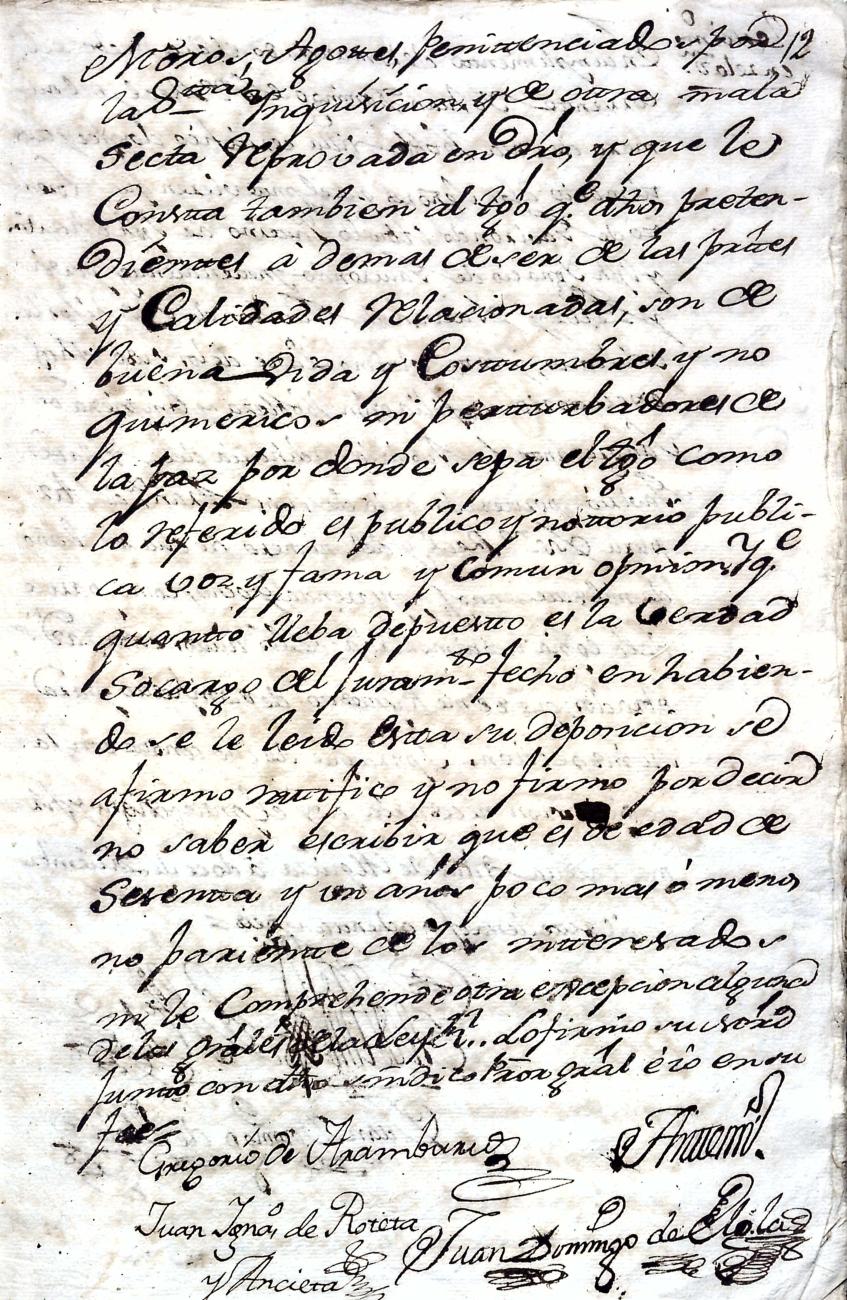 Moros, Agotes, Penittenciados por 12
la S.tta Inquisicion, y de ottra mala
Secta reprovada en dro, y que le
Constta tambien al tgo q.e dhos preten-
dientes a demas de ser de las prtes
y Calidades relacionadas, son de
buena vida y Costtumbres, y no
quimericos ni pertturbadores de
la paz por donde sepa el tgo como
lo referido es publico y nottorio publi-
ca voz y fama y comun opinion, y q.e
quantto lleba depuestto es la verdad
Socargo del Juram.to fecho en habien-
dose le leido estta su deposicion se
afirmo rattifico y no firmo por decir
no saber escribir que es de edad de
Sesentta y un años poco mas ó menos
no parientte de los inttteresados
ni le Comprehende otra excepcion alguna
delas grales dela Ley Lo firmo su mrd
Juntto con dho sindico Pror gral é io en su
fee
Gregorio de Aramburu Antemi.
Juan Ign.o de Roteta Juan Domingo de Elola
y Ancieta